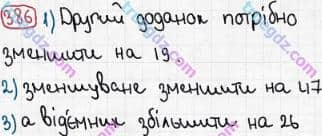 386 1) Другий доданок потрібно
зменшити на 19.
2) зменшуване зменшити на 47
3) а від'ємник збільшити на 26